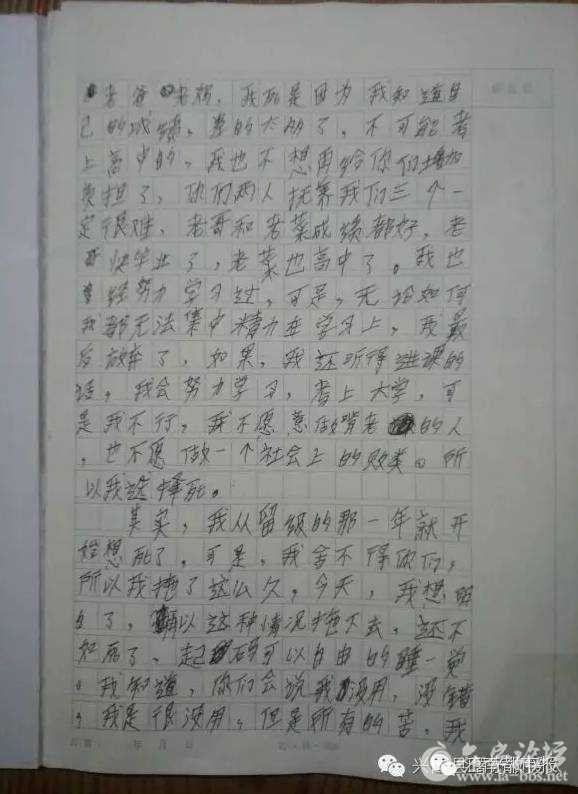 老爸老妈，我就是因为我知道自
己的成绩，差的太明了，不可能考
上高中的，我也不想再给你们增加
负担了，你们两人抚养我们三个一
定很难，老哥和老菜成绩都好，老
哥快毕业了，老菜也高中了。我也
曾经努力学习过，可是，无论如何
我都无法集中精力在学习上，我最
后放弃了，如果，我还听得进课的
话，我会努力学习，考上大学，可
是我不行，我不愿意做啃老的人
，也不愿做一个社会上的败类。所
以我选择死。
其实，我从留级的那一年就开
始想死了，可是，我舍不得你们，
所以我拖了这么久，今天，我想明
白了，以这种情况拖下去，还不
如死了，起码可以自由的睡一觉
。我知道，你们会说我没用，没错
，我是很没用，但是所有的苦，我
年 月 日
六良论坛
www.la-bbs.net